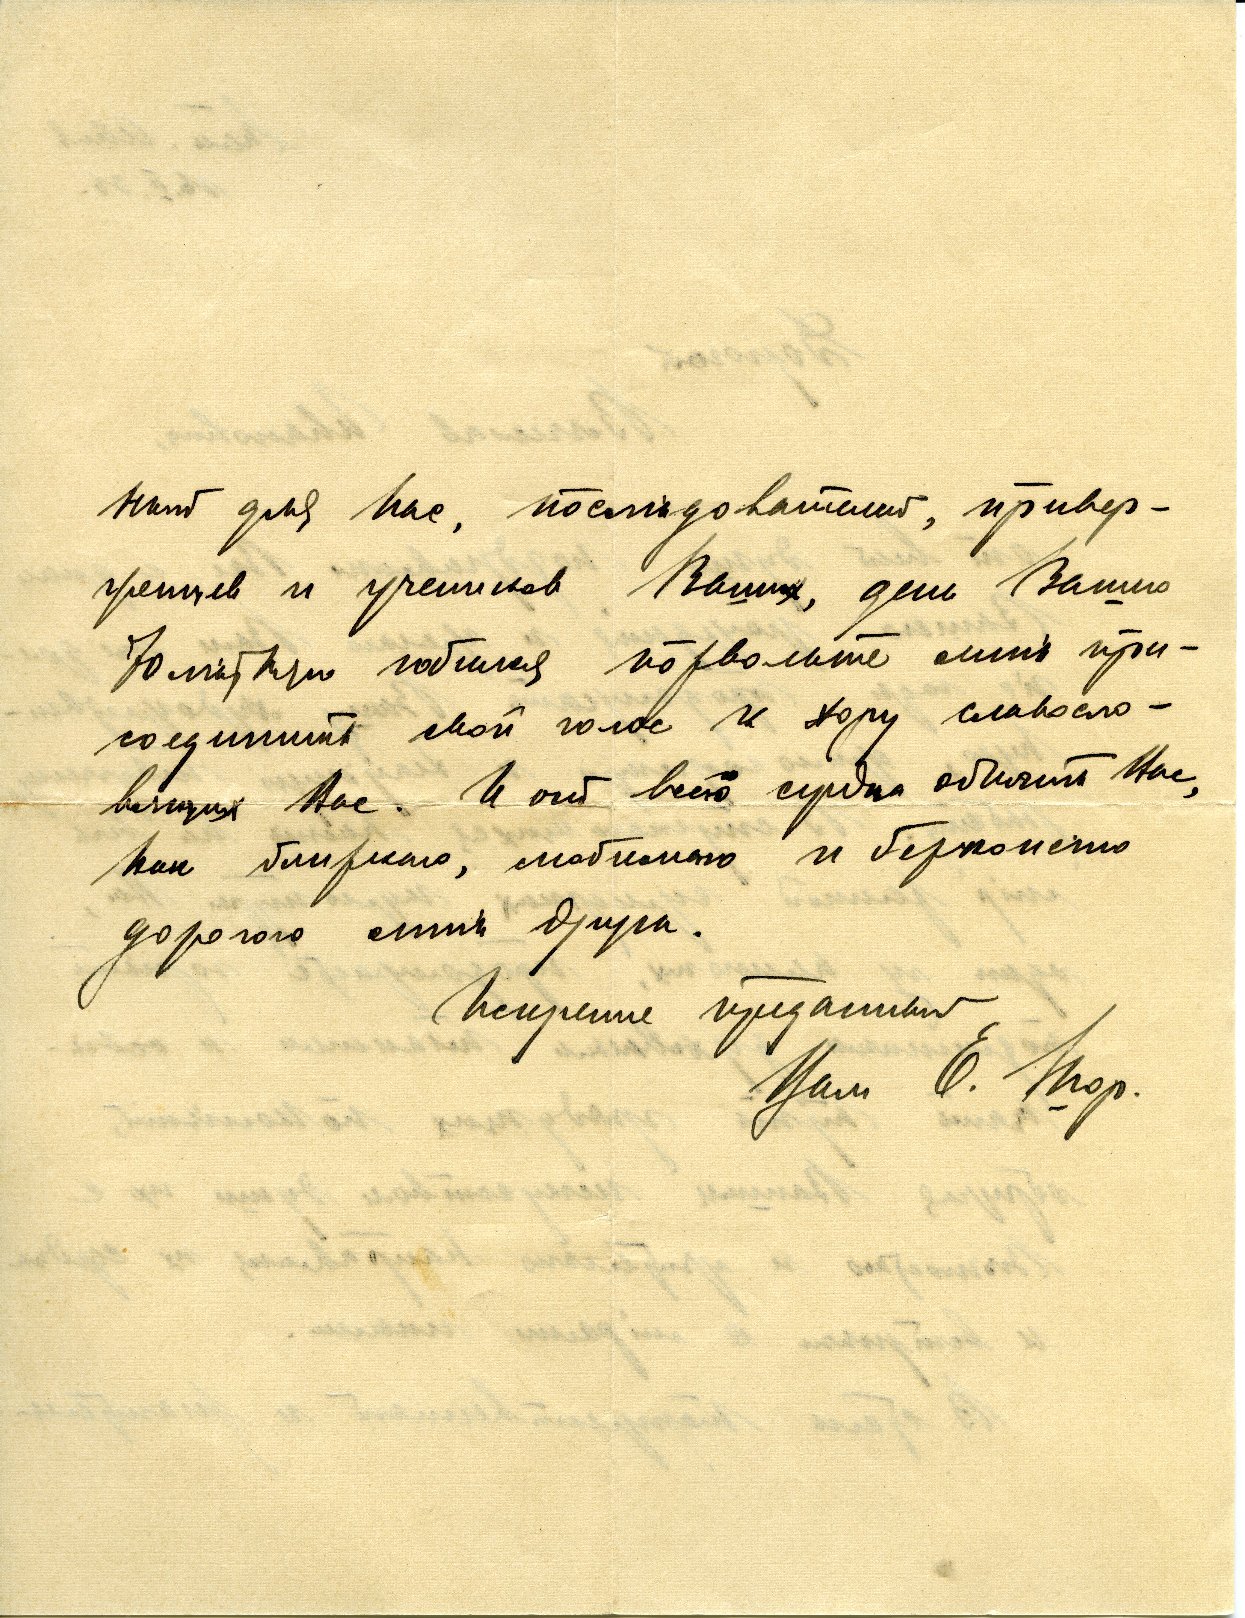 ный для нас, последователей, привер-
женцев и учеников Ваших, день Вашего
70 летняго юбилея позвольте мнѣ при-
соединить свой голос к хору славосло-
вящих Вас. И от всего сердца обнять Вас,
как близкаго, любимаго и безконечно
дорогого мнѣ друга.
Искренне преданный
Вам Е. Шор.